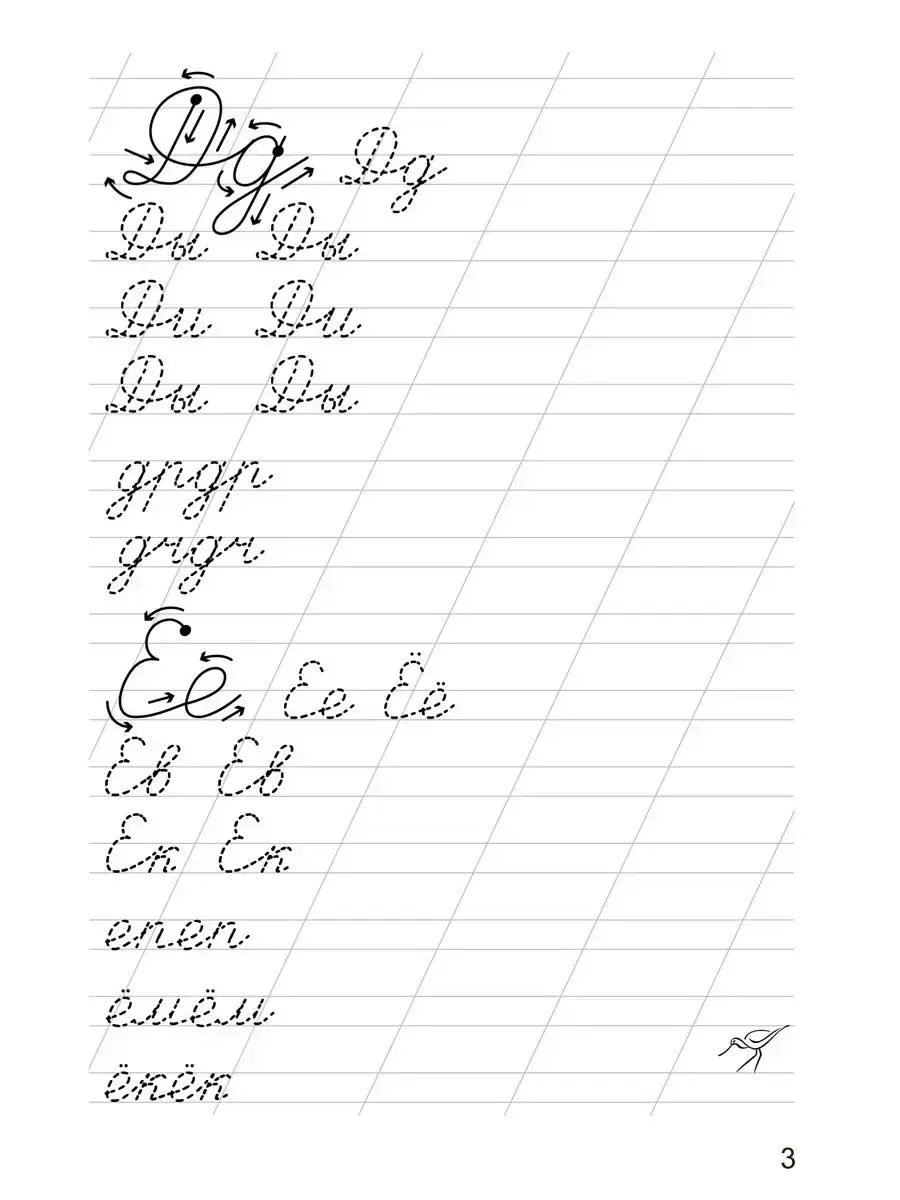 Дд Дд
Ды Ды
Ди Ди
Ды Ды
дрдр
дчдч
Ее Ее Ёё
Ев Ев
Ек Ек
епеп
ёмём
ёкёк
3